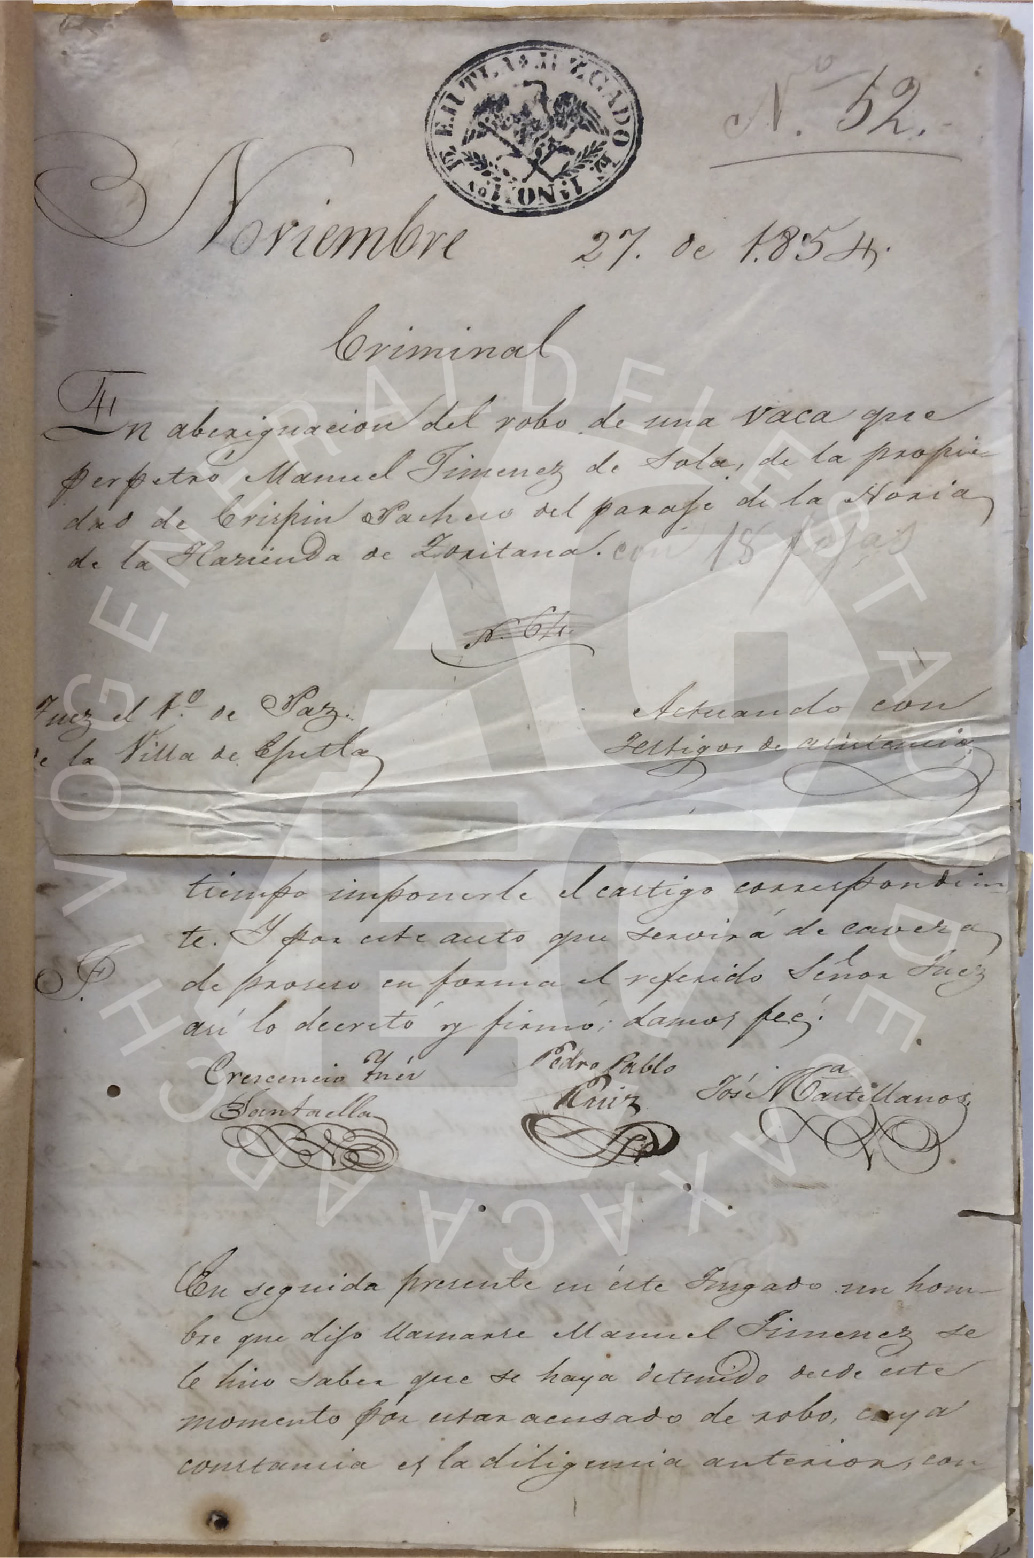 JUZGADO
No. 52.
Noviembre 27. de 1.854.
Criminal
En aberiguacion del robo de una vaca que
perpetro Manuel Jimenez de Sola, de la propie
dad de Crispin Pacheco del paraje de la Noria
de la Hazienda de Zoritana. con 18 fojas
N. 64.
Juez el 1.º de Paz.
de la Villa de Ejutla
Actuando con
testigos de asistencia
tiempo imponerle el castigo correspondien
te. Y por este auto que servirá de caveza
de proseso en forma el referido Señor Juez
así lo decretó y firmó; damos feé.
Crescencio Ynés
Santaella
Pedro Pablo
Ruiz
José Ma Castellanos
En seguida presente en éste Jusgado un hom-
bre que dijo llamarse Manuel Jimenez se
le hiso saber que se haya detenido desde este
momento por estar acusado de robo, cuya
constancia es la diligencia anterior, con
ARCHIVO GENERAL DEL ESTADO DE OAXACA
AGEO